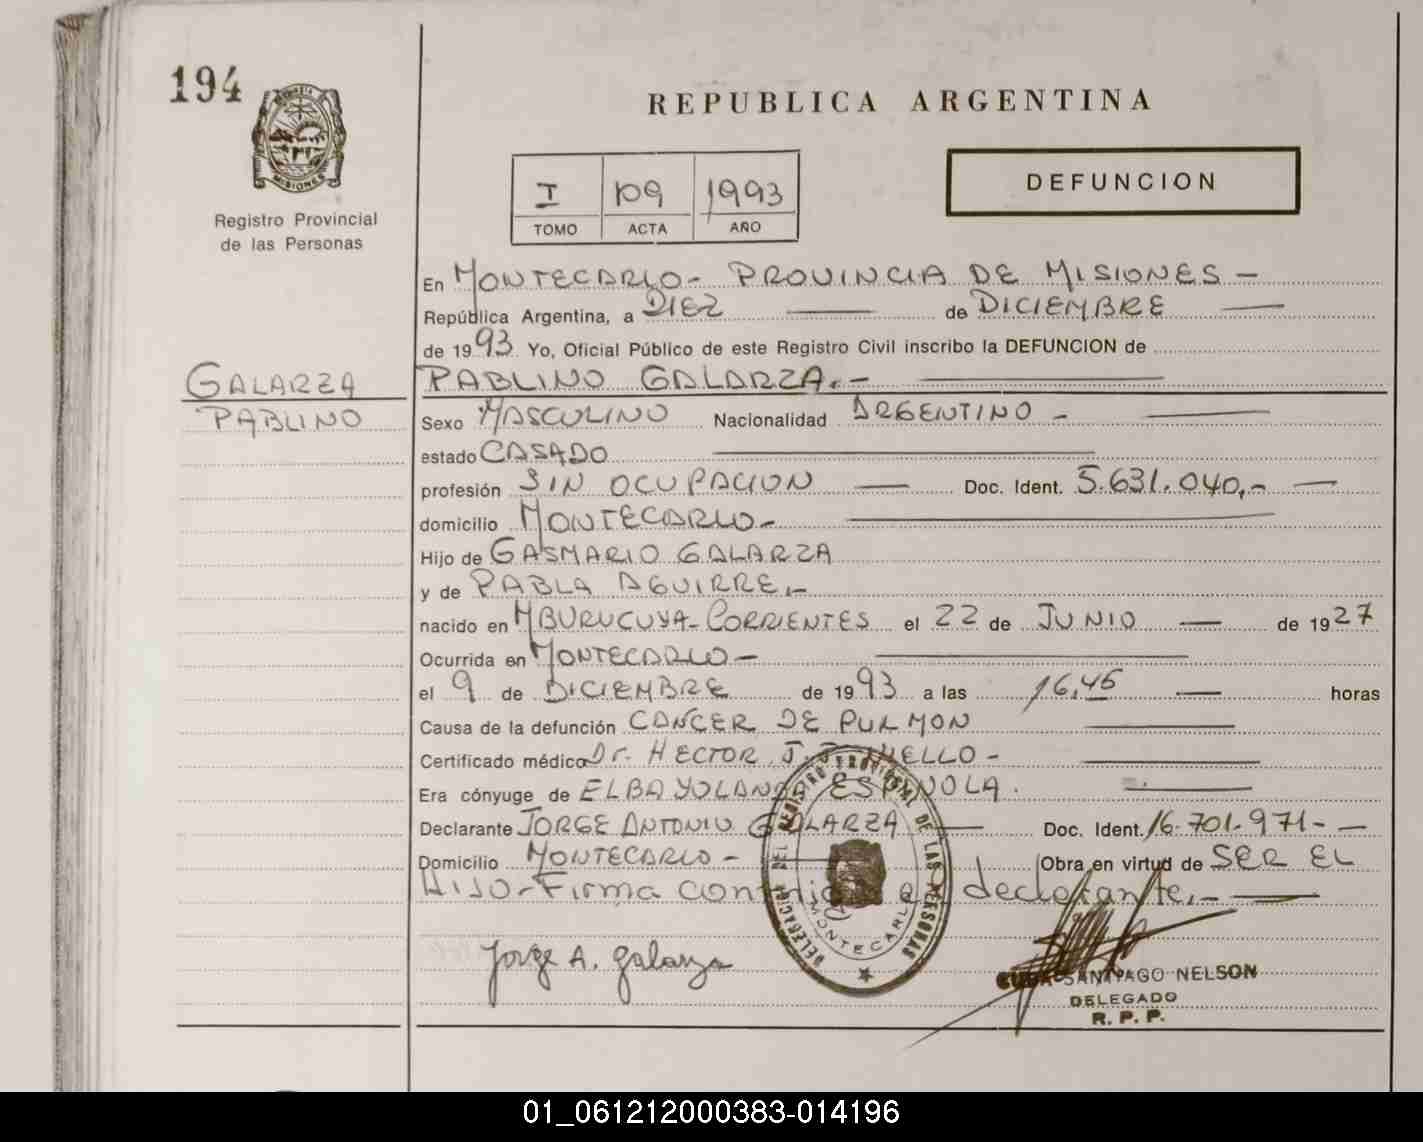 194
MISIONES
Registro Provincial
de las Personas
REPUBLICA ARGENTINA
I 109 1993
TOMO ACTA AÑO
DEFUNCION
En MONTECARLO- PROVINCIA DE MISIONES -
República Argentina, a DIEZ de DICIEMBRE
de 1993 Yo, Oficial Público de este Registro Civil inscribo la DEFUNCION de
GALARZA
PABLINO
PABLINO GALARZA.-
Sexo MASCULINO Nacionalidad ARGENTINO -
estado CASADO
profesión SIN OCUPACION Doc. Ident. 5.631.040,-
domicilio MONTECARLO-
Hijo de GASMARIO GALARZA
y de PABLA AGUIRRE,-
nacido en MBURUCUYA-CORRIENTES el 22 de JUNIO de 1927
Ocurrida en MONTECARLO-
el 9 de DICIEMBRE de 1993 a las 16,45 horas
Causa de la defunción CANCER DE PULMON
Certificado médico Dr. HECTOR J.
Era cónyuge de ELBA YOLANDA ESPINOLA.
Declarante JORGE ANTONIO GALARZA Doc. Ident. 16.701.971.-
Domicilio MONTECARLO- Obra en virtud de SER EL
HIJO-Firma conmigo el declarante.-
DELEGACION DEL REGISTRO PROVINCIAL DE LAS PERSONAS
MONTECARLO
Jorge A. Galarza
SANTIAGO NELSON
DELEGADO
R. P. P.
01_061212000383-014196